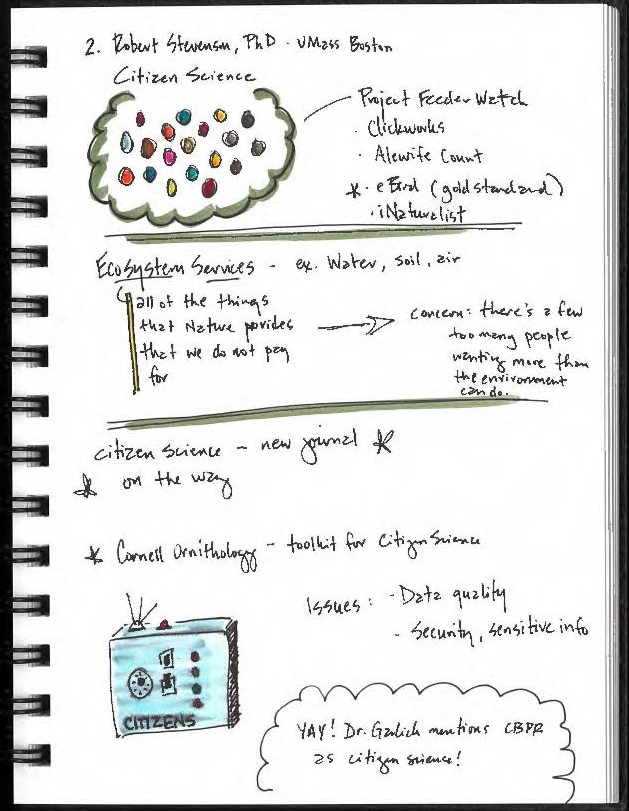 2. Robert Stevenson, PhD - UMass Boston
Citizen Science
Project FeederWatch
· Clickworks
· Alewife Count
* · eBird (gold standard)
· iNaturalist
Ecosystem Services - ex. Water, soil, air
all of the things
that Nature povides
that we do not pay
for
concern: there's a few
too many people
wanting more than
the environment
can do.
citizen science - new journal *
* on the way
* Cornell Ornithology - toolkit for Citizen Science
Issues: - Data quality
- Security, sensitive info
CITIZENS
YAY! Dr. mentions CBPR
as citizen science!